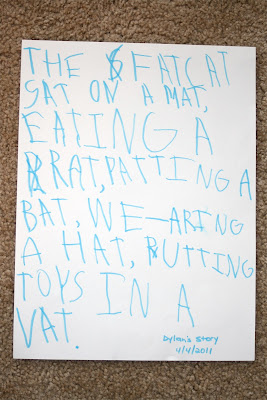 THE FATCAT
SAT ON A MAT,
EATING A
RAT, PATTING A
BAT, WE-ARING
A HAT, PUTTING
TOYS IN A
VAT.
Dylan's Story
4/4/2011